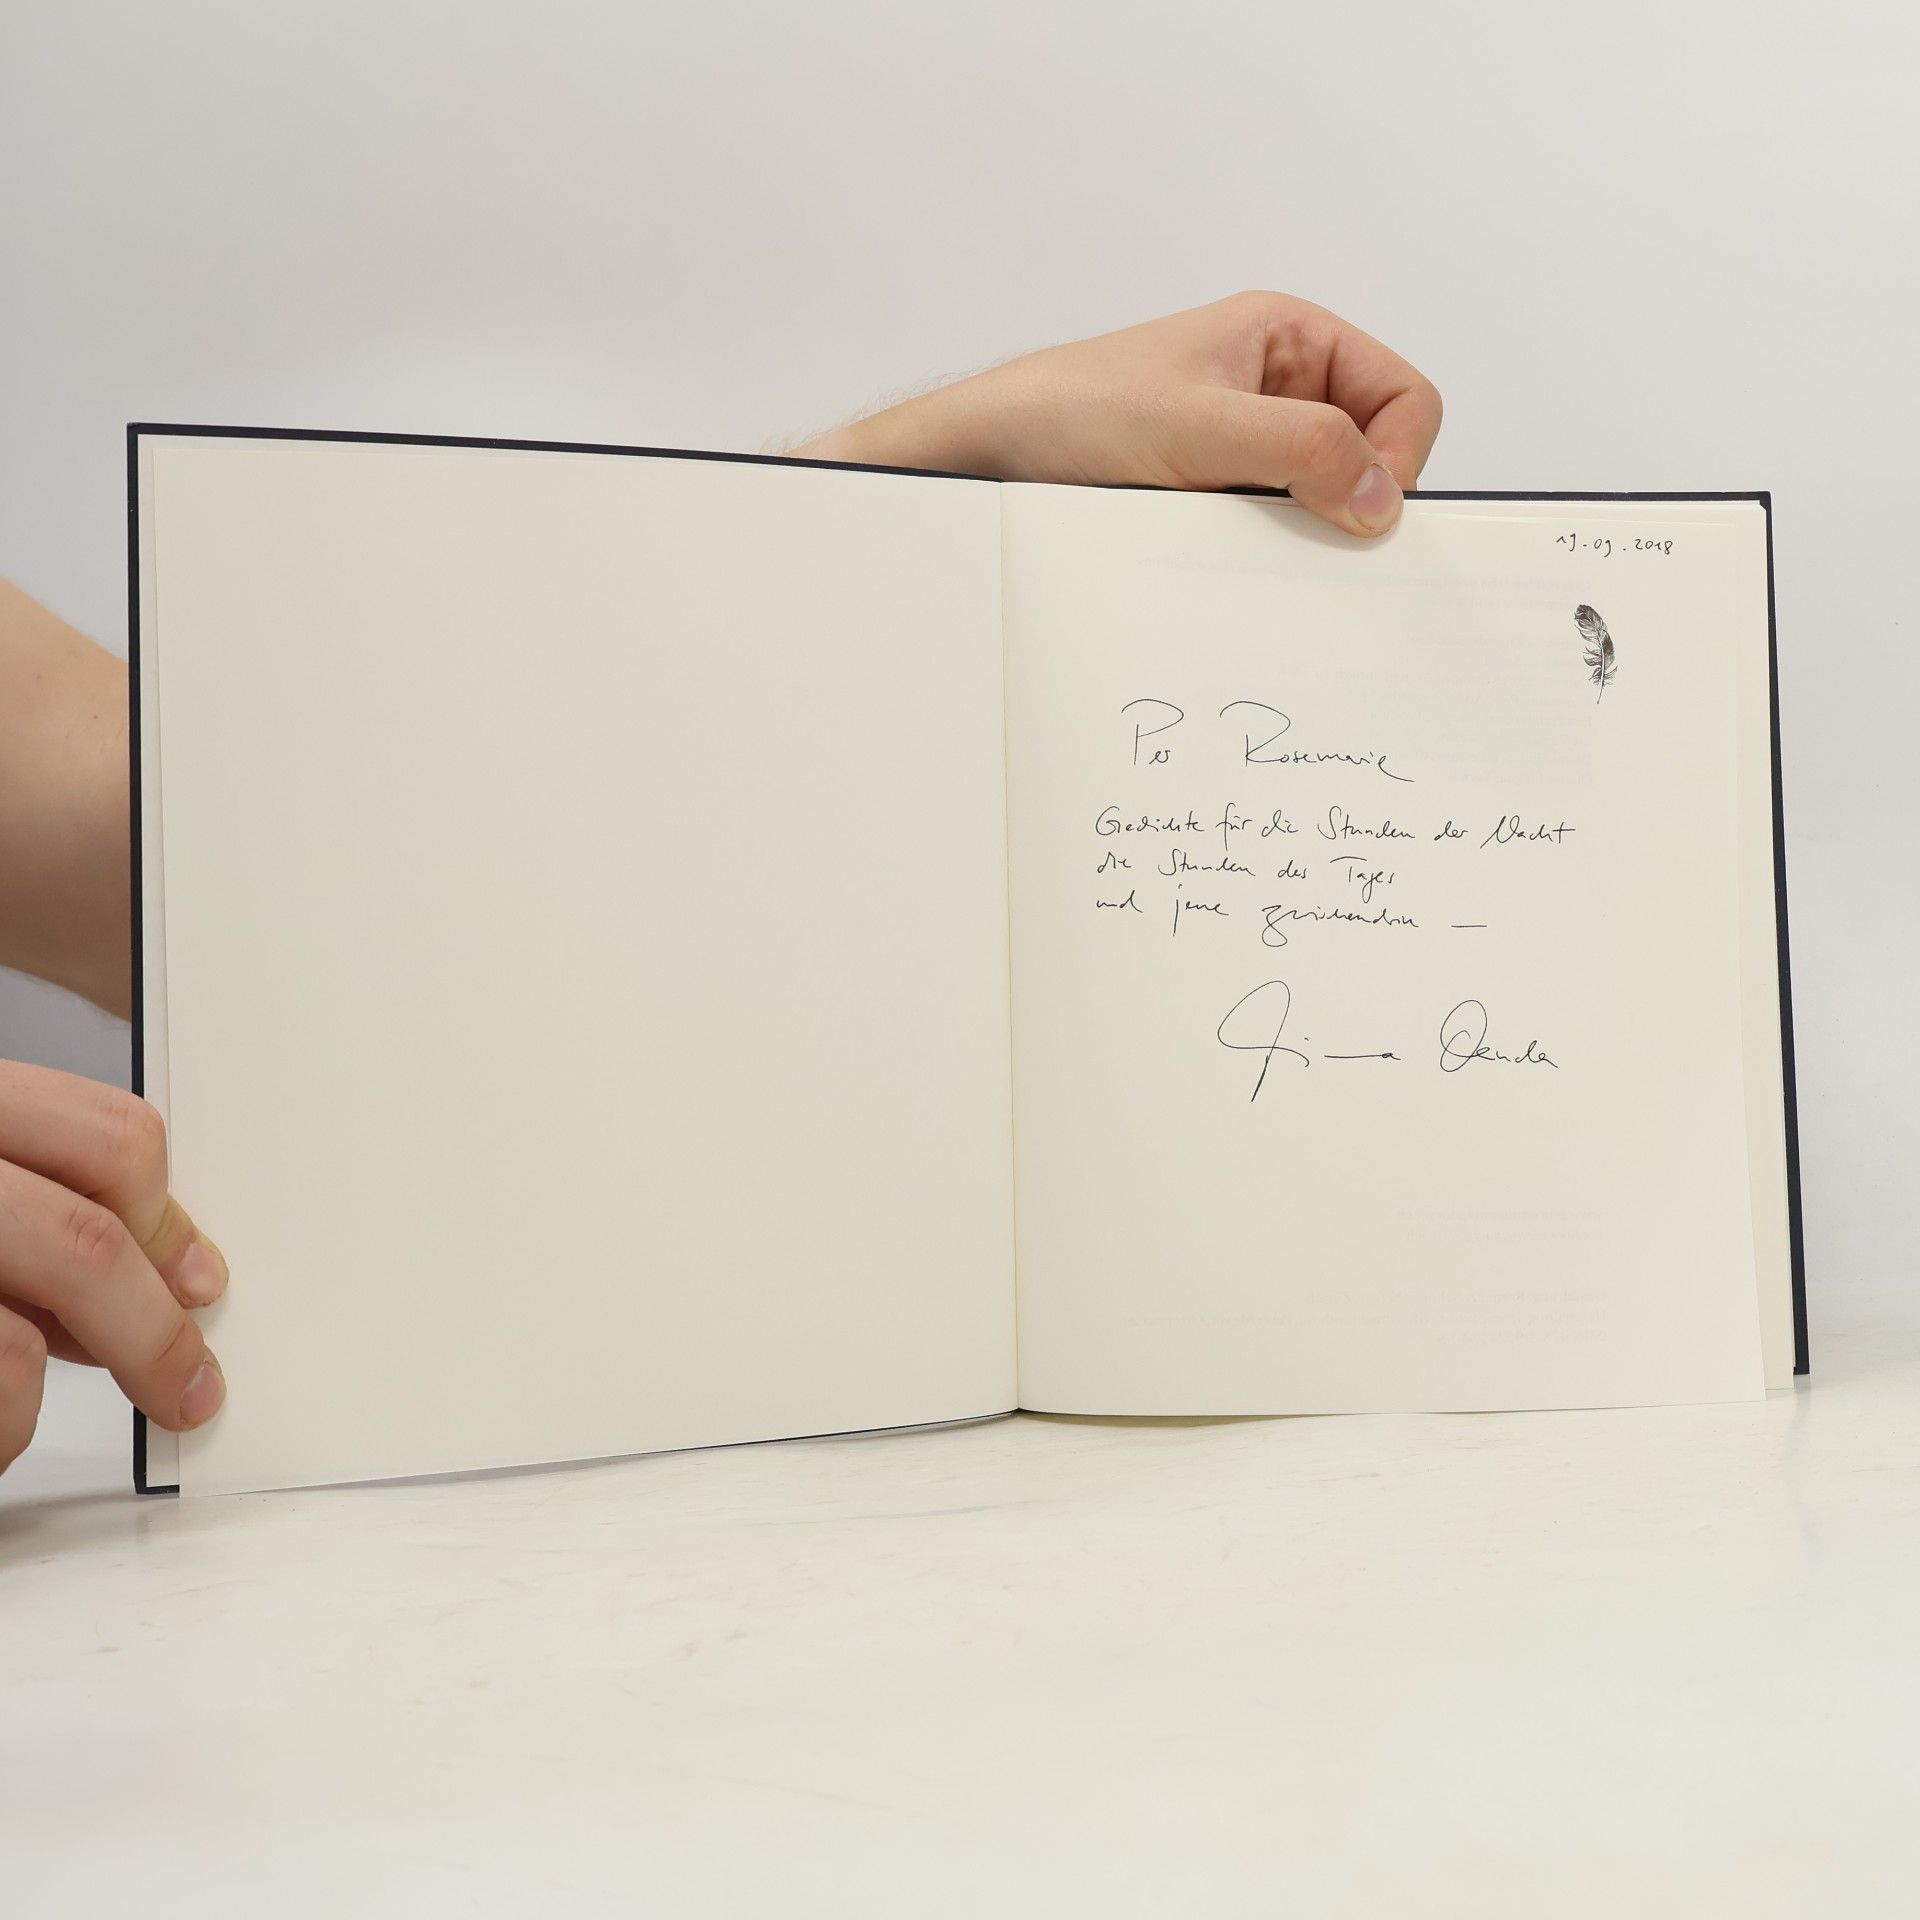 19.09.2018
Per Rosemarie
Gedichte für die Stunden der Nacht
die Stunden des Tages
und jene zwischendrin —